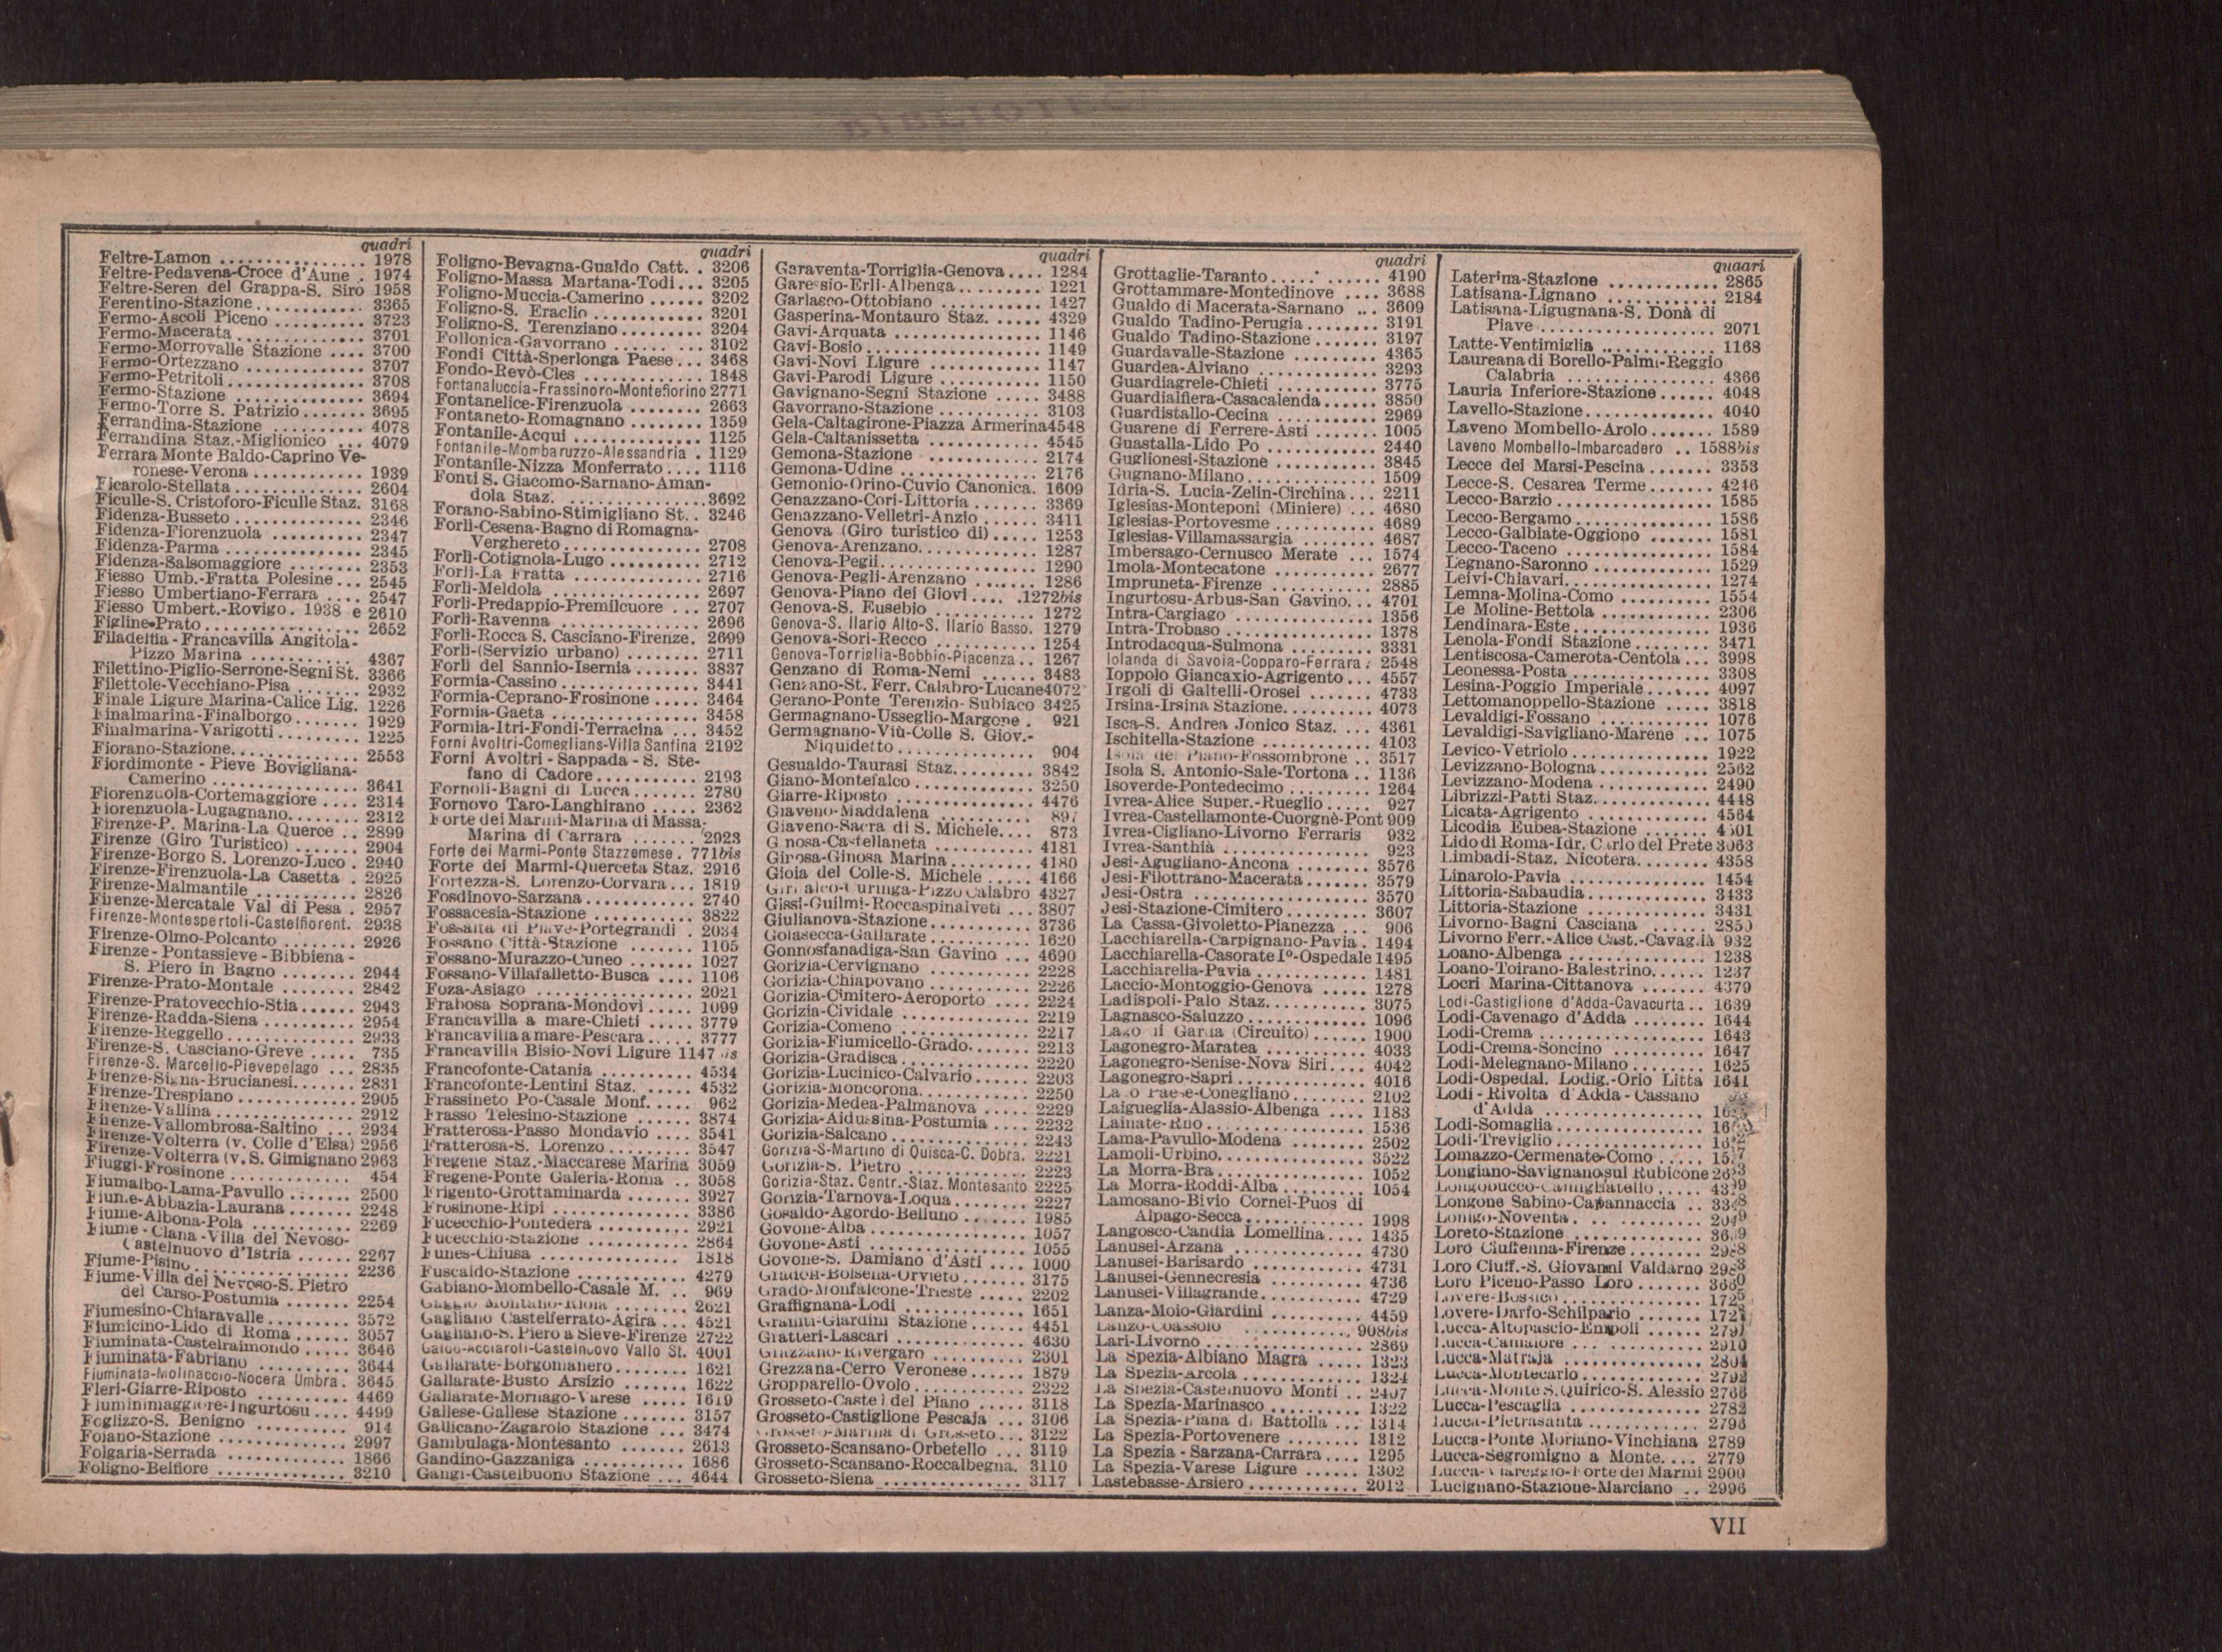 BIBLIOTECA
quadri
Feltre-Lamon ................ 1978
Feltre-Pedavena-Croce d'Aune . 1974
Feltre-Seren del Grappa-S. Siro 1958
Ferentino-Stazione ............ 3365
Fermo-Ascoli Piceno .......... 3723
Fermo-Macerata .............. 3701
Fermo-Morrovalle Stazione .... 3700
Fermo-Ortezzano ............ 3707
Fermo-Petritoli .............. 3708
Fermo-Stazione .............. 3694
Fermo-Torre S. Patrizio ....... 3695
Ferrandina-Stazione .......... 4078
Ferrandina Staz.-Miglionico ... 4079
Ferrara Monte Baldo-Caprino Ve-
ronese-Verona ............ 1939
Ficarolo-Stellata .............. 2604
Ficulle-S. Cristoforo-Ficulle Staz. 3168
Fidenza-Busseto .............. 2346
Fidenza-Fiorenzuola .......... 2347
Fidenza-Parma .............. 2345
Fidenza-Salsomaggiore ........ 2353
Fiesso Umb.-Fratta Polesine ... 2545
Fiesso Umbertiano-Ferrara .... 2547
Fiesso Umbert.-Rovigo. 1938 e 2610
Figline-Prato ................ 2652
Filadelfia - Francavilla Angitola-
Pizzo Marina ........... 4367
Filettino-Piglio-Serrone-Segni St. 3366
Filettole-Vecchiano-Pisa ....... 2932
Finale Ligure Marina-Calice Lig. 1226
Finalmarina-Finalborgo ....... 1929
Finalmarina-Varigotti ......... 1225
Fiorano-Stazione .............. 2553
Fiordimonte - Pieve Bovigliana-
Camerino ................ 3641
Fiorenzuola-Cortemaggiore .... 2314
Fiorenzuola-Lugagnano ........ 2312
Firenze-P. Marina-La Querce .. 2899
Firenze (Giro Turistico) ....... 2904
Firenze-Borgo S. Lorenzo-Luco . 2940
Firenze-Firenzuola-La Casetta . 2925
Firenze-Malmantile .......... 2826
Firenze-Mercatale Val di Pesa . 2957
Firenze-Montespertoli-Castelfiorent. 2938
Firenze-Olmo-Polcanto ........ 2926
Firenze - Pontassieve - Bibbiena -
S. Piero in Bagno ........ 2944
Firenze-Prato-Montale ........ 2842
Firenze-Pratovecchio-Stia ...... 2943
Firenze-Radda-Siena .......... 2954
Firenze-Reggello .............. 2933
Firenze-S. Casciano-Greve ..... 735
Firenze-S. Marcello-Pievepelago ... 2835
Firenze-Signa-Brucianesi ....... 2831
Firenze-Trespiano ............ 2905
Firenze-Vallina .............. 2912
Firenze-Vallombrosa-Saltino ... 2934
Firenze-Volterra (v. Colle d'Elsa) 2956
Firenze-Volterra (v. S. Gimignano 2963
Fiuggi-Frosinone ............ 454
Fiumalbo-Lama-Pavullo ...... 2500
Fiume-Abbazia-Laurana ....... 2248
Fiume-Albona-Pola .......... 2269
Fiume - Clana - Villa del Nevoso-
Castelnuovo d'Istria ...... 2267
Fiume-Pisino ................ 2236
Fiume-Villa del Nevoso-S. Pietro
del Carso-Postumia ....... 2254
Fiumesino-Chiaravalle ......... 3572
Fiumicino-Lido di Roma ...... 3057
Fiuminata-Castelraimondo ..... 3646
Fiuminata-Fabriano .......... 3644
Fiuminata-Molinaccio-Nocera Umbra . 3645
Fleri-Giarre-Riposto .......... 4469
Fluminimaggiore-Ingurtosu .... 4499
Foglizzo-S. Benigno .......... 914
Foiano-Stazione .............. 2997
Folgaria-Serrada ............ 1866
Foligno-Belfiore .............. 3210
quadri
Foligno-Bevagna-Gualdo Catt. . 3206
Foligno-Massa Martana-Todi ... 3205
Foligno-Muccia-Camerino ...... 3202
Foligno-S. Eraclio ............ 3201
Foligno-S. Terenziano ......... 3204
Follonica-Gavorrano ...... ... 3102
Fondi Città-Sperlonga Paese ... 3468
Fondo-Revò-Cles ............ 1848
Fontanaluccia-Frassinoro-Montefiorino 2771
Fontanelice-Firenzuola ........ 2663
Fontaneto-Romagnano ........ 1359
Fontanile-Acqui .............. 1125
Fontanile-Mombaruzzo-Alessandria . 1129
Fontanile-Nizza Monferrato .... 1116
Fonti S. Giacomo-Sarnano-Aman-
dola Staz. .............. 3692
Forano-Sabino-Stimigliano St. .. 3246
Forlì-Cesena-Bagno di Romagna-
Verghereto .............. 2708
Forlì-Cotignola-Lugo .......... 2712
Forlì-La Fratta .............. 2716
Forlì-Meldola ................ 2697
Forlì-Predappio-Premilcuore ... 2707
Forlì-Ravenna ............... 2696
Forlì-Rocca S. Casciano-Firenze. 2699
Forlì-(Servizio urbano) ........ 2711
Forlì del Sannio-Isernia ....... 3837
Formia-Cassino .............. 3441
Formia-Ceprano-Frosinone .... 3464
Formia-Gaeta ................ 3458
Formia-Itri-Fondi-Terracina ... 3452
Forni Avoltri-Comeglians-Villa Santina 2192
Forni Avoltri - Sappada - S. Ste-
fano di Cadore ........... 2193
Fornoli-Bagni di Lucca ....... 2780
Fornovo Taro-Langhirano ..... 2362
Forte dei Marmi-Marina di Massa-
Marina di Carrara ....... 2923
Forte dei Marmi-Ponte Stazzemese . 771bis
Forte dei Marmi-Querceta Staz. 2916
Fortezza-S. Lorenzo-Corvara ... 1819
Fosdinovo-Sarzana ........... 2740
Fossacesia-Stazione ........... 3822
Fossalta di Piave-Portegrandi . 2034
Fossano Città-Stazione ....... 1105
Fossano-Murazzo-Cuneo ....... 1027
Fossano-Villafalletto-Busca .... 1106
Foza-Asiago ................. 2021
Frabosa Soprana-Mondovì ..... 1099
Francavilla a mare-Chieti ..... 3779
Francavilla a mare-Pescara ..... 3777
Francavilla Bisio-Novi Ligure 1147
Francofonte-Catania .......... 4534
Francofonte-Lentini Staz. ..... 4532
Frassineto Po-Casale Monf. .... 962
Frasso Telesino-Stazione ...... 3874
Fratterosa-Passo Mondavio .... 3541
Fratterosa-S. Lorenzo ......... 3547
Fregene Staz.-Maccarese Marina 3059
Fregene-Ponte Galeria-Roma .. 3058
Frigento-Grottaminarda ....... 3927
Frosinone-Ripi ............... 3386
Fucecchio-Pontedera .......... 2921
Fucecchio-Stazione ........... 2864
Funes-Chiusa ................ 1818
Fuscaldo-Stazione ............ 4279
Gabiano-Mombello-Casale M. .. 969
Gaggio Montano-Riola ........ 2621
Gagliano Castelferrato-Agira ... 4521
Gagliano-S. Piero a Sieve-Firenze 2722
Acciaroli-Castelnuovo Vallo St. 4001
Gallarate-Borgomanero ........ 1621
Gallarate-Busto Arsizio ....... 1622
Gallarate-Mornago-Varese ..... 1619
Gallese-Gallese Stazione ....... 3157
Gallicano-Zagarolo Stazione ... 3474
Gambulaga-Montesanto ....... 2613
Gandino-Gazzaniga .......... 1686
Gangi-Castelbuono Stazione ... 4644
quadri
Garaventa-Torriglia-Genova .... 1284
Garessio-Erli-Albenga ......... 1221
Garlasco-Ottobiano .......... 1427
Gasperina-Montauro Staz. ..... 4329
Gavi-Arquata ................ 1146
Gavi-Bosio .................. 1149
Gavi-Novi Ligure ............ 1147
Gavi-Parodi Ligure ........... 1150
Gavignano-Segni Stazione ..... 3488
Gavorrano-Stazione ........... 3103
Gela-Caltagirone-Piazza Armerina4548
Gela-Caltanissetta ............ 4545
Gemona-Stazione ............ 2174
Gemona-Udine .............. 2176
Gemonio-Orino-Cuvio Canonica. 1609
Genazzano-Cori-Littoria ....... 3369
Genazzano-Velletri-Anzio ...... 3411
Genova (Giro turistico di) ..... 1253
Genova-Arenzano ............. 1287
Genova-Pegli ................ 1290
Genova-Pegli-Arenzano ....... 1286
Genova-Piano dei Giovi .... .1272bis
Genova-S. Eusebio ........... 1272
Genova-S. Ilario Alto-S. Ilario Basso. 1279
Genova-Sori-Recco ........... 1254
Genova-Torriglia-Bobbio-Piacenza .. 1267
Genzano di Roma-Nemi ...... 3483
Genzano-St. Ferr. Calabro-Lucane4072
Gerano-Ponte Terenzio-Subiaco 3425
Germagnano-Usseglio-Margone . 921
Germagnano-Viù-Colle S. Giov.-
Niquidetto ............... 904
Gesualdo-Taurasi Staz. ........ 3842
Giano-Montefalco ............. 3250
Giarre-Riposto ............... 4476
Giaveno-Maddalena .......... 897
Giaveno-Sacra di S. Michele.... 873
Ginosa-Castellaneta ........... 4181
Ginosa-Ginosa Marina ......... 4180
Gioia del Colle-S. Michele ..... 4166
Girifalco-Curinga-Pizzo Calabro 4327
Gissi-Guilmi-Roccaspinalveti ... 3807
Giulianova-Stazione ........... 3736
Golasecca-Gallarate ........... 1620
Gonnosfanadiga-San Gavino ... 4690
Gorizia-Cervignano ........... 2228
Gorizia-Chiapovano ........... 2226
Gorizia-Cimitero-Aeroporto .... 2224
Gorizia-Cividale .............. 2219
Gorizia-Comeno .............. 2217
Gorizia-Fiumicello-Grado ....... 2213
Gorizia-Gradisca .............. 2220
Gorizia-Lucinico-Calvario ...... 2203
Gorizia-Moncorona ............ 2250
Gorizia-Medea-Palmanova ..... 2229
Gorizia-Aidussina-Postumia .... 2232
Gorizia-Salcano ............... 2243
Gorizia-S-Martino di Quisca-C. Dobra. 2221
Gorizia-S. Pietro ............. 2223
Gorizia-Staz. Centr.-Staz. Montesanto 2225
Gorizia-Tarnova-Loqua ........ 2227
Gosaldo-Agordo-Belluno ....... 1985
Govone-Alba ................ 1057
Govone-Asti ................. 1055
Govone-S. Damiano d'Asti .... 1000
Gradoli-Bolsena-Orvieto ....... 3175
Grado-Monfalcone-Trieste ..... 2202
Graffignana-Lodi ............. 1651
Graniti-Giardini Stazione ...... 4451
Gratteri-Lascari .............. 4630
Grazzano-Rivergaro ........... 2301
Grezzana-Cerro Veronese ...... 1879
Gropparello-Ovolo ............ 2322
Grosseto-Castel del Piano ..... 3118
Grosseto-Castiglione Pescaja ... 3106
Grosseto-Marina di Grosseto ... 3122
Grosseto-Scansano-Orbetello ... 3119
Grosseto-Scansano-Roccalbegna. 3110
Grosseto-Siena ............... 3117
quadri
Grottaglie-Taranto ............ 4190
Grottammare-Montedinove .... 3688
Gualdo di Macerata-Sarnano ... 3609
Gualdo Tadino-Perugia ........ 3191
Gualdo Tadino-Stazione ....... 3197
Guardavalle-Stazione ......... 4365
Guardea-Alviano ............. 3293
Guardiagrele-Chieti ........... 3775
Guardialfiera-Casacalenda ...... 3850
Guardistallo-Cecina ........... 2969
Guarene di Ferrere-Asti ....... 1005
Guastalla-Lido Po ............ 2440
Guglionesi-Stazione ........... 3845
Gugnano-Milano .............. 1509
Idria-S. Lucia-Zelin-Circhina ... 2211
Iglesias-Monteponi (Miniere) ... 4680
Iglesias-Portovesme ........... 4689
Iglesias-Villamassargia ........ 4687
Imbersago-Cernusco Merate ... 1574
Imola-Montecatone ........... 2677
Impruneta-Firenze ............ 2885
Ingurtosu-Arbus-San Gavino... 4701
Intra-Cargiago ............... 1356
Intra-Trobaso ................ 1378
Introdacqua-Sulmona ......... 3331
Iolanda di Savoia-Copparo-Ferrara . 2548
Ioppolo Giancaxio-Agrigento ... 4557
Irgoli di Galtelli-Orosei ....... 4733
Irsina-Irsina Stazione .......... 4073
Isca-S. Andrea Jonico Staz. ... 4361
Ischitella-Stazione ............ 4103
Isola del Piano-Fossombrone .. 3517
Isola S. Antonio-Sale-Tortona .. 1136
Isoverde-Pontedecimo ......... 1264
Ivrea-Alice Super.-Rueglio ..... 927
Ivrea-Castellamonte-Cuorgnè-Pont 909
Ivrea-Cigliano-Livorno Ferraris 932
Ivrea-Santhià ................ 923
Jesi-Agugliano-Ancona ........ 3576
Jesi-Filottrano-Macerata ....... 3579
Jesi-Ostra ................... 3570
Jesi-Stazione-Cimitero ......... 3607
La Cassa-Givoletto-Pianezza ... 906
Lacchiarella-Carpignano-Pavia . 1494
Lacchiarella-Casorate Iº-Ospedale 1495
Lacchiarella-Pavia ............ 1481
Laccio-Montoggio-Genova ..... 1278
Ladispoli-Palo Staz. ........... 3075
Lagnasco-Saluzzo ............. 1096
Lago di Garda (Circuito) ...... 1900
Lagonegro-Maratea ........... 4033
Lagonegro-Senise-Nova Siri .... 4042
Lagonegro-Sapri .............. 4016
Lago Paese-Conegliano ........ 2102
Laigueglia-Alassio-Albenga .... 1183
Lainate-Rho ................. 1536
Lama-Pavullo-Modena ........ 2502
Lamoli-Urbino ................ 3522
La Morra-Bra ................ 1052
La Morra-Roddi-Alba ......... 1054
Lamosano-Bivio Cornei-Puos di
Alpago-Secca ............ 1998
Langosco-Candia Lomellina .... 1435
Lanusei-Arzana .............. 4730
Lanusei-Barisardo ............ 4731
Lanusei-Gennecresia .......... 4736
Lanusei-Villagrande ........... 4729
Lanza-Moio-Giardini .......... 4459
Lanzo-Coassolo ............ 908bis
Lari-Livorno ................ 2869
La Spezia-Albiano Magra ..... 1323
La Spezia-Arcola ............. 1324
La Spezia-Castelnuovo Monti .. 2407
La Spezia-Marinasco .......... 1322
La Spezia-Piana di Battolla ... 1314
La Spezia-Portovenere ........ 1312
La Spezia - Sarzana-Carrara .... 1295
La Spezia-Varese Ligure ...... 1302
Lastebasse-Arsiero ............ 2012
quadri
Laterina-Stazione ............ 2865
Latisana-Lignano ............ 2184
Latisana-Ligugnana-S. Donà di
Piave ................... 2071
Latte-Ventimiglia ............. 1168
Laureana di Borello-Palmi-Reggio
Calabria ................ 4366
Lauria Inferiore-Stazione ...... 4048
Lavello-Stazione .............. 4040
Laveno Mombello-Arolo ....... 1589
Laveno Mombello-Imbarcadero .. 1588bis
Lecce dei Marsi-Pescina ....... 3353
Lecce-S. Cesarea Terme ....... 4246
Lecco-Barzio ................. 1585
Lecco-Bergamo ............... 1586
Lecco-Galbiate-Oggiono ....... 1581
Lecco-Taceno ................ 1584
Legnano-Saronno ............. 1529
Leivi-Chiavari ................ 1274
Lemna-Molina-Como .......... 1554
Le Moline-Bettola ............ 2306
Lendinara-Este ............... 1936
Lenola-Fondi Stazione ......... 3471
Lentiscosa-Camerota-Centola ... 3998
Leonessa-Posta ............... 3308
Lesina-Poggio Imperiale ....... 4097
Lettomanoppello-Stazione ..... 3818
Levaldigi-Fossano ............ 1076
Levaldigi-Savigliano-Marene ... 1075
Levico-Vetriolo ............... 1922
Levizzano-Bologna ............ 2562
Levizzano-Modena ............ 2490
Librizzi-Patti Staz. ............ 4448
Licata-Agrigento .............. 4564
Licodia Eubea-Stazione ....... 4501
Lido di Roma-Idr. Carlo del Prete 3063
Limbadi-Staz. Nicotera ........ 4358
Linarolo-Pavia ............... 1454
Littoria-Sabaudia ............. 3433
Littoria-Stazione ............. 3431
Livorno-Bagni Casciana ....... 2850
Livorno Ferr.-Alice Cast.-Cavaglià 932
Loano-Albenga ............... 1238
Loano-Toirano-Balestrino ...... 1237
Locri Marina-Cittanova ....... 4379
Lodi-Castiglione d'Adda-Cavacurta .. 1639
Lodi-Cavenago d'Adda ........ 1644
Lodi-Crema .................. 1643
Lodi-Crema-Soncino .......... 1647
Lodi-Melegnano-Milano ........ 1625
Lodi-Ospedal. Lodig.-Orio Litta 1641
Lodi - Rivolta d'Adda - Cassano
d'Adda .................
Lodi-Somaglia ................
Lodi-Treviglio ................
Lomazzo-Cermenate-Como .....
Longiano-Savignano sul Rubicone
Longobucco-Camigliatello .....
Longone Sabino-Capannaccia ..
Lonigo-Noventa ............. 2049
Loreto-Stazione ..............
Loro Ciuffenna-Firenze ........
Loro Ciuff.-S. Giovanni Valdarno
Loro Piceno-Passo Loro ....... 3660
Lovere-Bossico ............... 1725
Lovere-Darfo-Schilpario ....... 172
Lucca-Altopascio-Empoli ...... 2791
Lucca-Camaiore .............. 2910
Lucca-Matraja ............... 2804
Lucca-Montecarlo ............ 2792
Lucca-Monte S. Quirico-S. Alessio 2766
Lucca-Pescaglia .............. 2782
Lucca-Pietrasanta ............ 2796
Lucca-Ponte Moriano-Vinchiana 2789
Lucca-Segromigno a Monte..... 2779
Lucca-Viareggio-Forte dei Marmi 2900
Lucignano-Stazione-Marciano .. 2996
VII